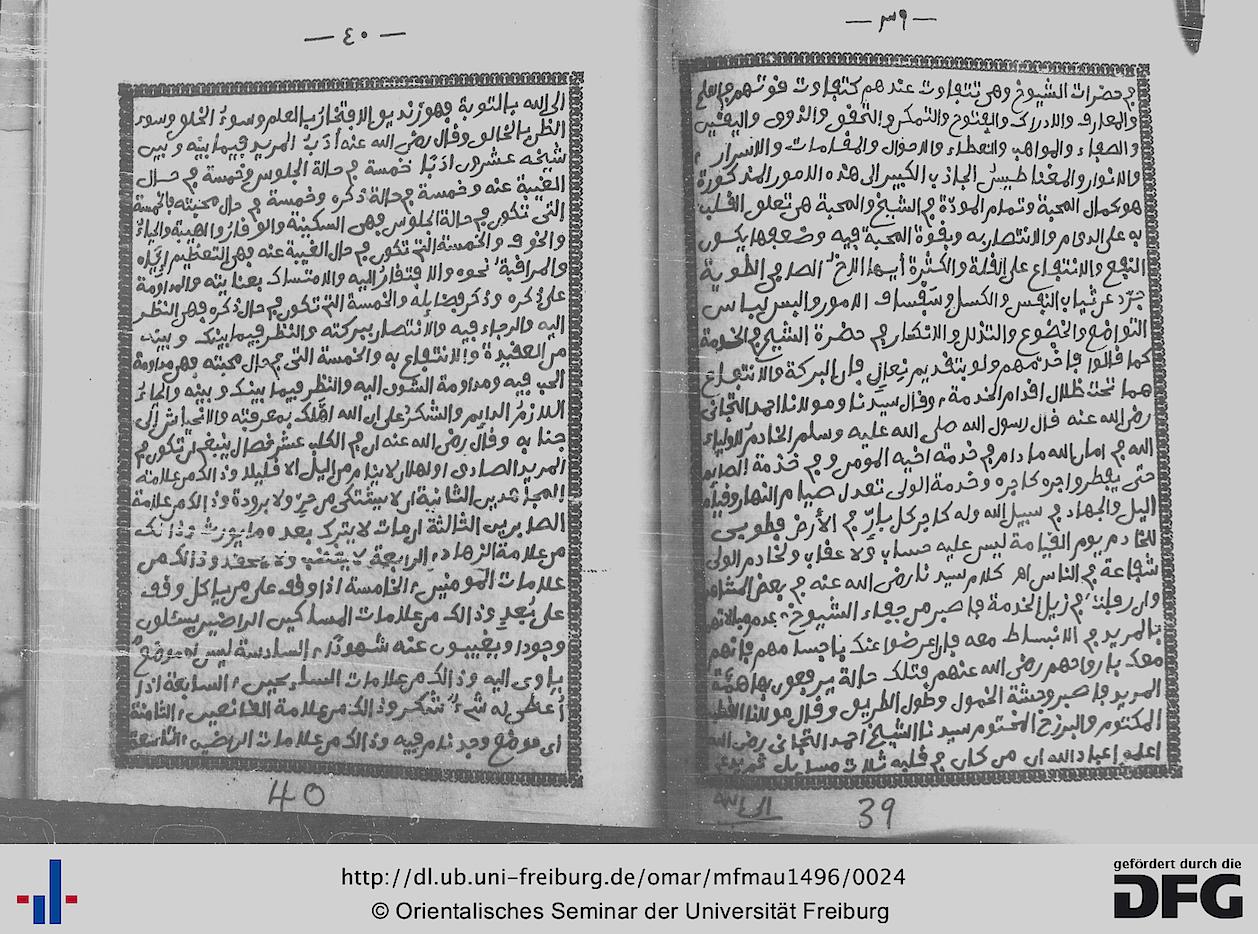 — ٣٩ —
في حضرات الشيوخ وهي تتفاوت عندهم كتفاوت قوتهم في العلم
والمعارف والادراك والفتوح والتمكن والتحقق والذوق واليقين
والصفاء والمواهب والعطاء والاحوال والمقامات والاسرار
والانوار والمغناطيس الجاذب الكبير الى هذه الامور المذكورة
هو كمال المحبة وتمام المودة في الشيخ والمحبة هي تعلق القلب
به على الدوام والانتصار به وبقوة المحبة فيه وضعفها يكون
النفع والانتفاع على القلة والكثرة أيها الاخ الصافي الطوية
جرّد عن ثياب النفس والكسل وسفساف الامور والبس لباس
التواضع والخضوع والتذلل والانكسار في حضرة الشيخ في الخدمة
كما قالوا فاخدمهم ولو بتقديم نعال فان البركة والانتفاع
هما تحت ظلال اقدام الخدمة وقال سيدنا ومولانا احمد التجاني
رضي الله عنه قال رسول الله صلى الله عليه وسلم الخادم للاولياء
الله في امان الله ما دام في خدمة اخيه المومن وفي خدمة الصايم
حتى يفطر واجره كاجره وخدمة الولي تعدل صيام النهار وقيام
اليل والجهاد في سبيل الله وله كاجر كل بارّ في الأرض فطوبى
للخادم يوم القيامة ليس عليه حساب ولا عقاب ولخادم الولي
شفاعة في الناس اهـ كلام سيدنا رضي الله عنه في بعض المشاهد
وان رقبت في زيل الخدمة فاصبر من جفاء الشيوخ
بالمريد في الانبساط معه فان اعرضوا عنك باجسامهم فانهم
معك بارواحهم رضي الله عنهم فتلك حالة يرفعون بها همّة
المريد فاصبر وحشة الخمول وطول الطريق وقال مولانا القطب
المكتوم والبرزخ المختوم سيدنا الشيخ احمد التجاني رضي الله
اعلم اعباد الله ان من كان في قلبه ثلاث مسايل
الى الله
39
— ٤٠ —
الى الله بالتوبة فهو زنديق الافتخار بالعلم وسوءُ الخلق وسوء
الظن بالخالق وقال رضي الله عنه أدَبُ المريد فيما بينه وبين
شيخه عشرون ادبًا خمسة في حالة الجلوس وخمسة في حال
الغيبة عنه وخمسة في حالة ذكره وخمسة في حال محبته فالخمسة
التي تكون في حالة الجلوس فهي السكينة والوقار والهيبة والحياءُ
والخوف والخمسة التي تكون في حال الغيبة عنه فهي التعظيم إيّاه
والمراقبة نحوه والافتقار اليه والامتساك بعنايته والمداومة
على ذكره وذكر فضايله والخمسة التي تكون في حال ذكره فهي النظر
اليه والرجاء فيه والانتصار ببركته والنظر فيما بينك وبينه
من العقيدة والانتفاع به والخمسة التي في حال محبته فهي مداومة
الحب فيه ومداومة الشوق اليه والنظر فيما بينك وبينه والحياءُ
اللازمُ الدايم والشكر على ان الله اهّلك بمعرفته والانحياش إلى
جنابه وقال رضي الله عنه ان في الكلب عشر خصال ينبغي ان تكون في
المريد الصادق اولها ان لا ينام من اليل الا قليلا وذالك من علامة
المجاهدين الثانية ان لا يشتكي من حرّ ولا برودة وذالك من علامة
الصابرين الثالثة ان مات لا يترك بعده ما يورث وذالك
من علامة الزهاد الرابعة لا يغضب ولا يحقد وذالك من
علامات المومنين الخامسة اذا وقف على من ياكل وقف
على بُعدٍ وذالك من علامات المساكين الراضين يسئلون
وجودا ويغيبون عنه شهودًا السادسة ليس له موضع
ياوى اليه وذالك من علامات السايحين السابعة اذا
أعطي له شيءٌ شكر وذالك من علامة القانعين الثامنة
اي موضع وجد نام فيه وذالك من علامات الراضين التاسعة
40
http://dl.ub.uni-freiburg.de/omar/mfmau1496/0024
© Orientalisches Seminar der Universität Freiburg
gefördert durch die
DFG